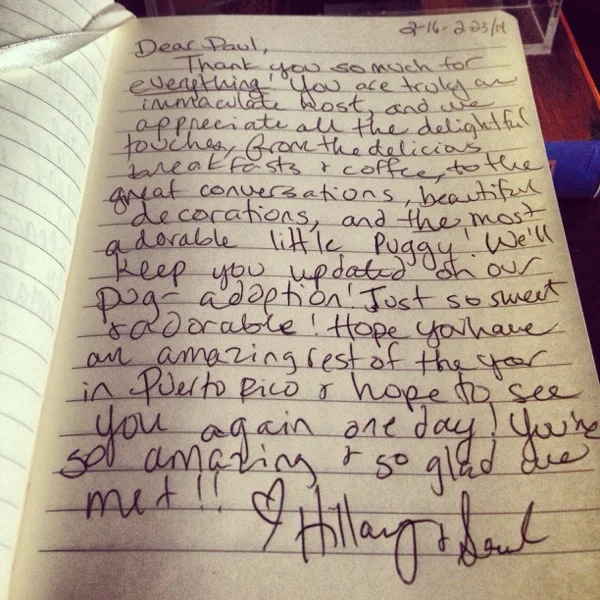 2-16-2-23/14
Dear Paul,
Thank you so much for
everything! You are truly an
immaculate host, and we
appreciate all the delightful
touches, from the delicious
breakfasts & coffee, to the
great conversations, beautiful
decorations, and the most
adorable little Puggy! We'll
keep you updated on our
pug-adoption! Just so sweet
& adorable! Hope you have
an amazing rest of the year
in Puerto Rico & hope to see
you again one day! You're
so amazing & so glad we
met!! ♡ Hillary &